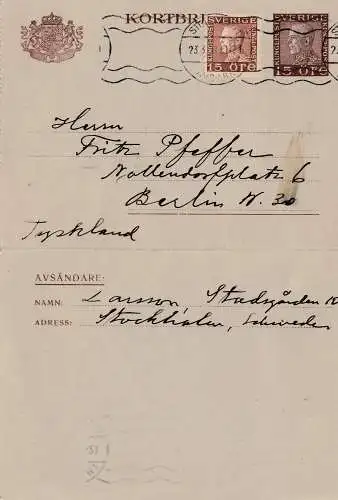 KORTBRE
SVERIGE
15 ÖRE
SVERIGE
15 ÖRE
Herrn
Fritz Pfeffer
Nollendorfplatz 6
Berlin W. 30
Tyskland
AVSÄNDARE:
NAMN: Larsson Stadsgården 18
ADRESS: Stockholm, Schweden